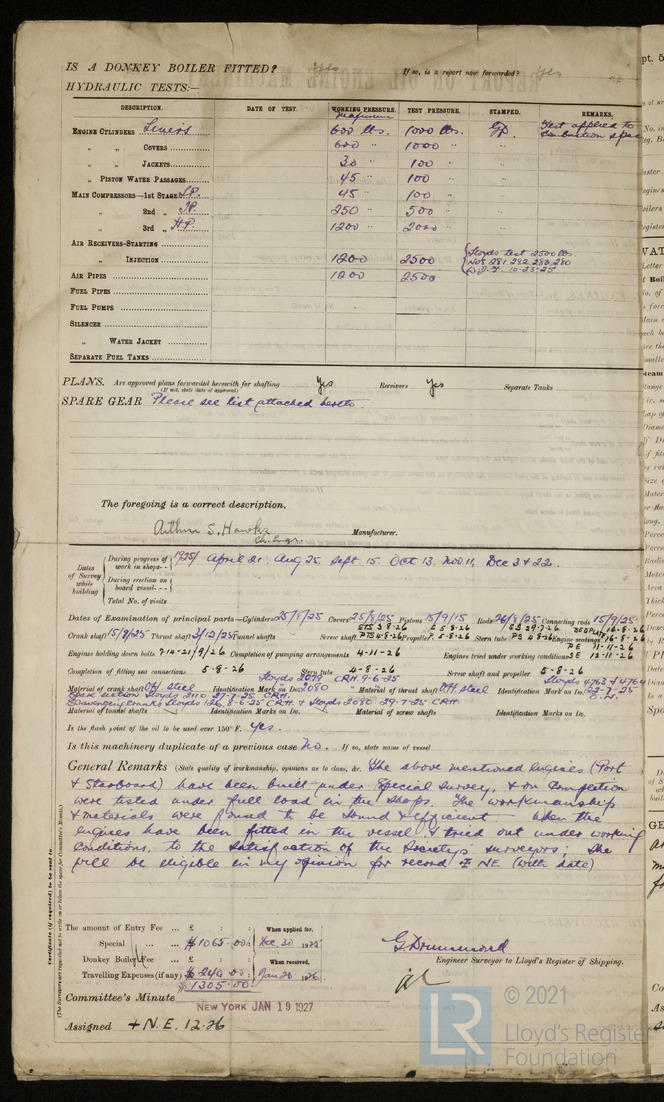 IS A DONKEY BOILER FITTED? Yes If so, is a report now forwarded? Yes
HYDRAULIC TESTS:—
DESCRIPTION. DATE OF TEST. WORKING PRESSURE. TEST PRESSURE. STAMPED. REMARKS.
Maximum
ENGINE CYLINDERS Liners 600 lbs. 1000 lbs. Test applied to
combustion space
" " COVERS 600 " 1000 "
" " JACKETS 30 " 100 "
" PISTON WATER PASSAGES 45 " 100 "
MAIN COMPRESSORS—1st STAGE LP. 45 " 100 "
" 2nd " IP. 250 " 500 "
" 3rd " H.P. 1200 " 2000 "
AIR RECEIVERS-STARTING
" INJECTION 1200 2500 Lloyds test 2500 lbs.
Nos 281. 282. 283. 280
10-23-25
AIR PIPES 1200 2500
FUEL PIPES
FUEL PUMPS
SILENCER
" WATER JACKET
SEPARATE FUEL TANKS
PLANS. Are approved plans forwarded herewith for shafting Yes Receivers Yes Separate Tanks
(If not, state date of approval)
SPARE GEAR Please see list attached hereto.
The foregoing is a correct description,
Arthur S. Hawks Manufacturer.
Ch. Engr.
Dates of Survey while building
During progress of work in shops-- 1925/ April 21, Aug 25, Sept. 15. Oct 13. Nov. 11, Dec 3 & 22.
During erection on board vessel---
Total No. of visits
Dates of Examination of principal parts—Cylinders 25/8/25 Covers 25/8/25 Pistons 15/9/15 Rods 26/8/25 Connecting rods 15/9/25
Crank shaft 15/8/25 Thrust shaft 3/12/25 Tunnel shafts Screw shaft Propeller Stern tube Engine seatings
Engines holding down bolts 7-14-21/9/26 Completion of pumping arrangements 4-11-26 Engines tried under working conditions 12-11-26
Completion of fitting sea connections 5-8-26 Stern tube 4-8-26 Screw shaft and propeller 5-8-26
Lloyds 2079 CRH. 9-6-25 Lloyds 4763 & 4764
Material of crank shaft OH. Steel Identification Mark on Do. 2080 Material of thrust shaft OH Steel Identification Mark on Do. 22-7-25
Lloyds 2110 27-7-25 CRH.
Scavenging cranks Lloyds 126, 8-6-25 CRH & Lloyds 2080 29-7-25 CRH
Material of tunnel shafts Identification Marks on Do. Material of screw shafts Identification Marks on Do.
Is the flash point of the oil to be used over 150° F. Yes.
Is this machinery duplicate of a previous case No. If so, state name of vessel
General Remarks (State quality of workmanship, opinions as to class, &c. The above mentioned Engines (Port
& Starboard) have been built under Special Survey, & on completion
were tested under full load in the shops. The workmanship
& materials were found to be sound & efficient. When the
engines have been fitted in the vessel & tried out under working
conditions, to the satisfaction of the Society's surveyors; she
will be eligible in my opinion for record + NE (with date)
Certificate (if required) to be sent to
(The Surveyors are requested not to write on or below the space for Committee's Minute.)
The amount of Entry Fee ... £ : : When applied for,
Special ... ... $1065.00 Dec 30 1925
Donkey Boiler Fee ... £ : : When received,
Travelling Expenses (if any) $ 240.00 Jan 26 1926
$1305.00
G Drummond
Engineer Surveyor to Lloyd's Register of Shipping.
Committee's Minute NEW YORK JAN 19 1927
Assigned + N.E. 12.26
LR © 2021
Lloyd's Register
Foundation